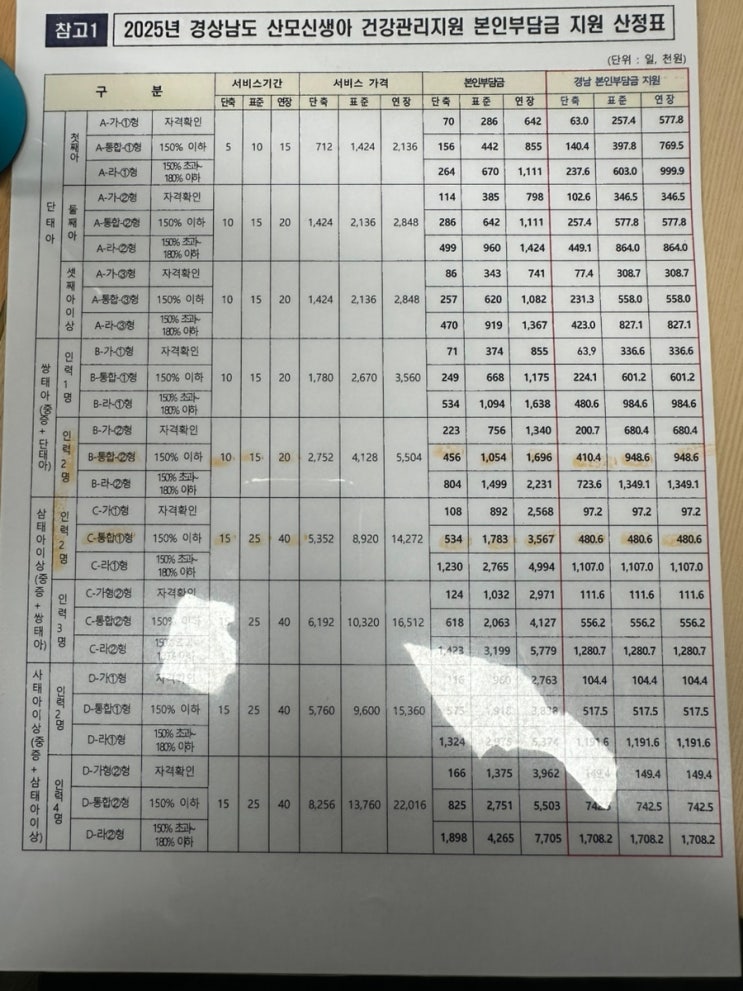 참고1
2025년 경상남도 산모신생아 건강관리지원 본인부담금 지원 산정표
(단위 : 일, 천원)
구 분 서비스기간 서비스 가격 본인부담금 경남 본인부담금 지원
단축 표준 연장 단축 표준 연장 단축 표준 연장 단축 표준 연장
단태아
첫째아
A-가-①형 자격확인 70 286 642 63.0 257.4 577.8
A-통합-①형 150% 이하 5 10 15 712 1,424 2,136 156 442 855 140.4 397.8 769.5
A-라-①형 150% 초과~ 180% 이하 264 670 1,111 237.6 603.0 999.9
둘째아
A-가-②형 자격확인 114 385 798 102.6 346.5 346.5
A-통합-②형 150% 이하 10 15 20 1,424 2,136 2,848 286 642 1,111 257.4 577.8 577.8
A-라-②형 150% 초과~ 180% 이하 499 960 1,424 449.1 864.0 864.0
셋째아이상
A-가-③형 자격확인 86 343 741 77.4 308.7 308.7
A-통합-③형 150% 이하 10 15 20 1,424 2,136 2,848 257 620 1,082 231.3 558.0 558.0
A-라-③형 150% 초과~ 180% 이하 470 919 1,367 423.0 827.1 827.1
쌍태아(중증+단태아)
인력1명
B-가-①형 자격확인 71 374 855 63.9 336.6 336.6
B-통합-①형 150% 이하 10 15 20 1,780 2,670 3,560 249 668 1,175 224.1 601.2 601.2
B-라-①형 150% 초과~ 180% 이하 534 1,094 1,638 480.6 984.6 984.6
인력2명
B-가-②형 자격확인 223 756 1,340 200.7 680.4 680.4
B-통합-②형 150% 이하 10 15 20 2,752 4,128 5,504 456 1,054 1,696 410.4 948.6 948.6
B-라-②형 150% 초과~ 180% 이하 804 1,499 2,231 723.6 1,349.1 1,349.1
삼태아이상(중증+쌍태아)
인력2명
C-가①형 자격확인 108 892 2,568 97.2 97.2 97.2
C-통합①형 150% 이하 15 25 40 5,352 8,920 14,272 534 1,783 3,567 480.6 480.6 480.6
C-라①형 150% 초과~ 180% 이하 1,230 2,765 4,994 1,107.0 1,107.0 1,107.0
인력3명
C-가형②형 자격확인 124 1,032 2,971 111.6 111.6 111.6
C-통합②형 150% 25 40 6,192 10,320 16,512 618 2,063 4,127 556.2 556.2 556.2
C-라②형 1,423 3,199 5,779 1,280.7 1,280.7 1,280.7
사태아이상(중증+삼태아이상)
인력2명
D-가①형 2,763 104.4 104.4 104.4
D-통합①형 150% 이하 15 25 40 5,760 9,600 15,360 517.5 517.5 517.5
D-라①형 150% 초과~ 180% 이하 1,324 1,191.6 1,191.6
인력4명
D-가형②형 자격확인 166 1,375 3,962 149.4 149.4 149.4
D-통합②형 150% 이하 15 25 40 8,256 13,760 22,016 825 2,751 5,503 742.5 742.5 742.5
D-라②형 150% 초과~ 180% 이하 1,898 4,265 7,705 1,708.2 1,708.2 1,708.2